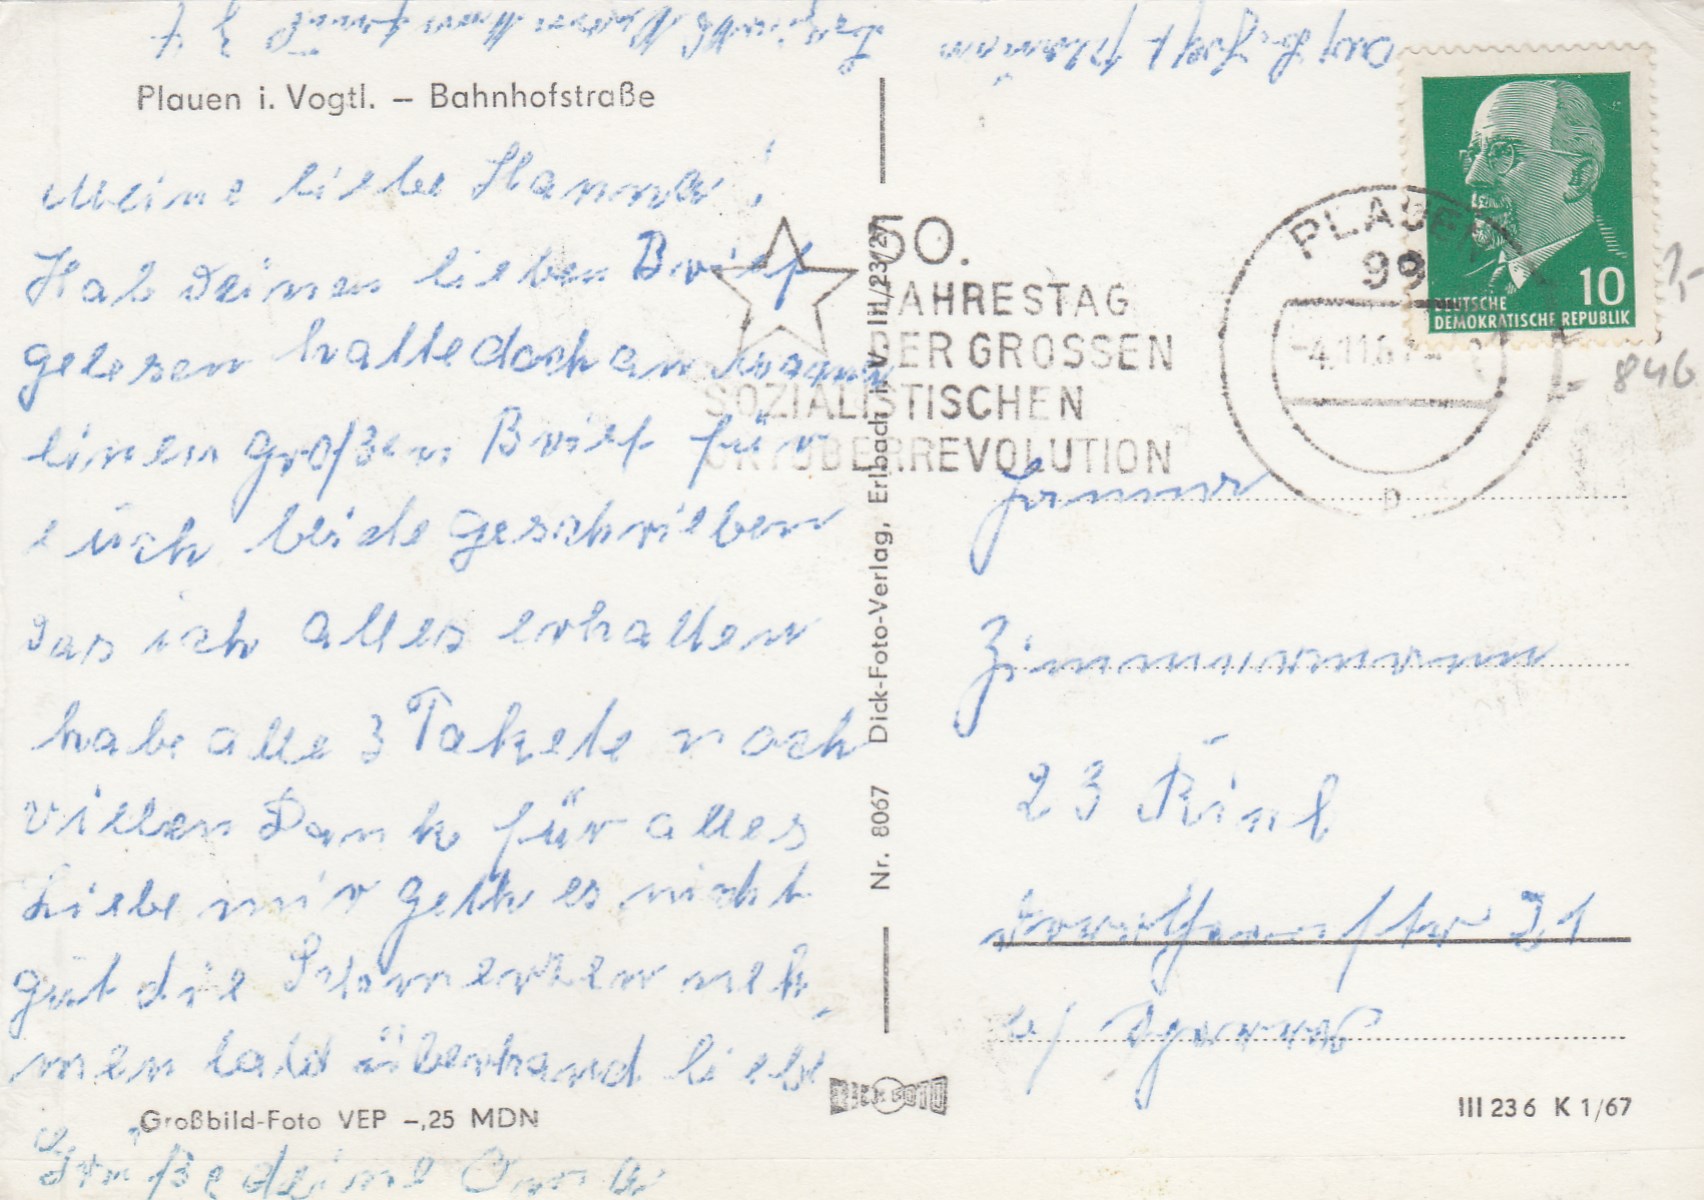 Plauen i. Vogtl. – Bahnhofstraße
Meine liebe Hanna!
Hab deinen lieben Brief
gelesen hatte doch an
einen großen Brief für
euch beide geschrieben
das ich alles erhalten
habe alle 3 Pakete noch
vielen Dank für alles
Liebe mir geth es nicht
gut die Schmerzen neh,
men bald überhand liebe
Großbild-Foto VEP –,25 MDN
Grüße deine Oma
Nr. 8067 Dick-Foto-Verlag, Erlbach i. V. III/23/27
DICK FOTO
50.
JAHRESTAG
DER GROSSEN
SOZIALISTISCHEN
OKTOBERREVOLUTION
PLAUEN
99
-4.11.67
10
DEUTSCHE
DEMOKRATISCHE REPUBLIK
1,-
846
Zimmermann
23 Kiel
21
III 23 6 K 1/67